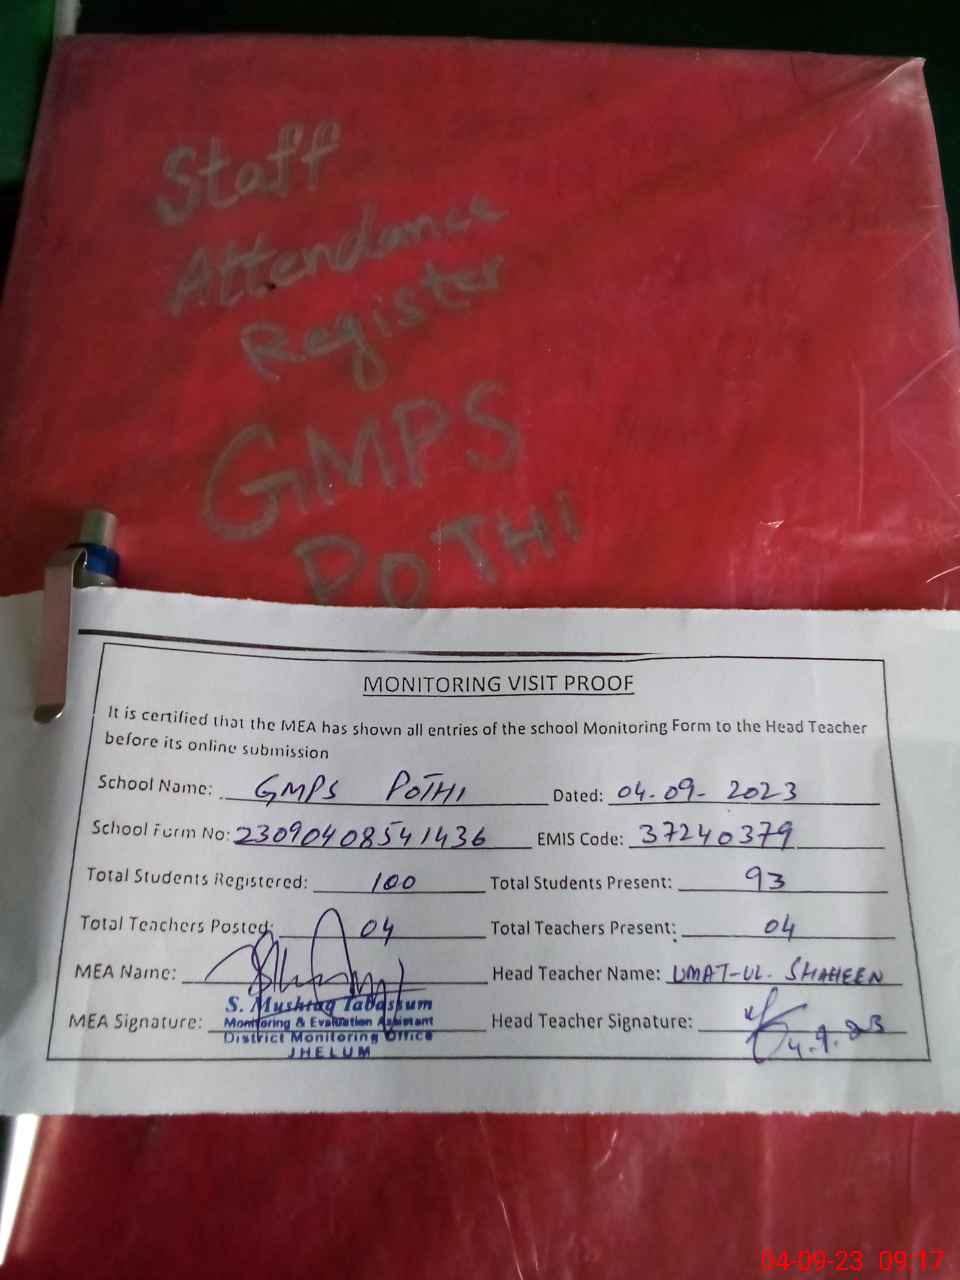 Staff
Attendance
Register
GMPS
POTHI
MONITORING VISIT PROOF
It is certified that the MEA has shown all entries of the school Monitoring Form to the Head Teacher
before its online submission
School Name: GMPS POTHI Dated: 04-09-2023
School Form No: 23090408541436 EMIS Code: 37240379
Total Students Registered: 100 Total Students Present: 93
Total Teachers Posted: 04 Total Teachers Present: 04
MEA Name: Head Teacher Name: UMAT-UL. SHAHEEN
S. Mushtaq Tabassum
MEA Signature: Monitoring & Evaluation Assistant Head Teacher Signature: 4.9.23
District Monitoring Office
JHELUM
04-09-23 09:17